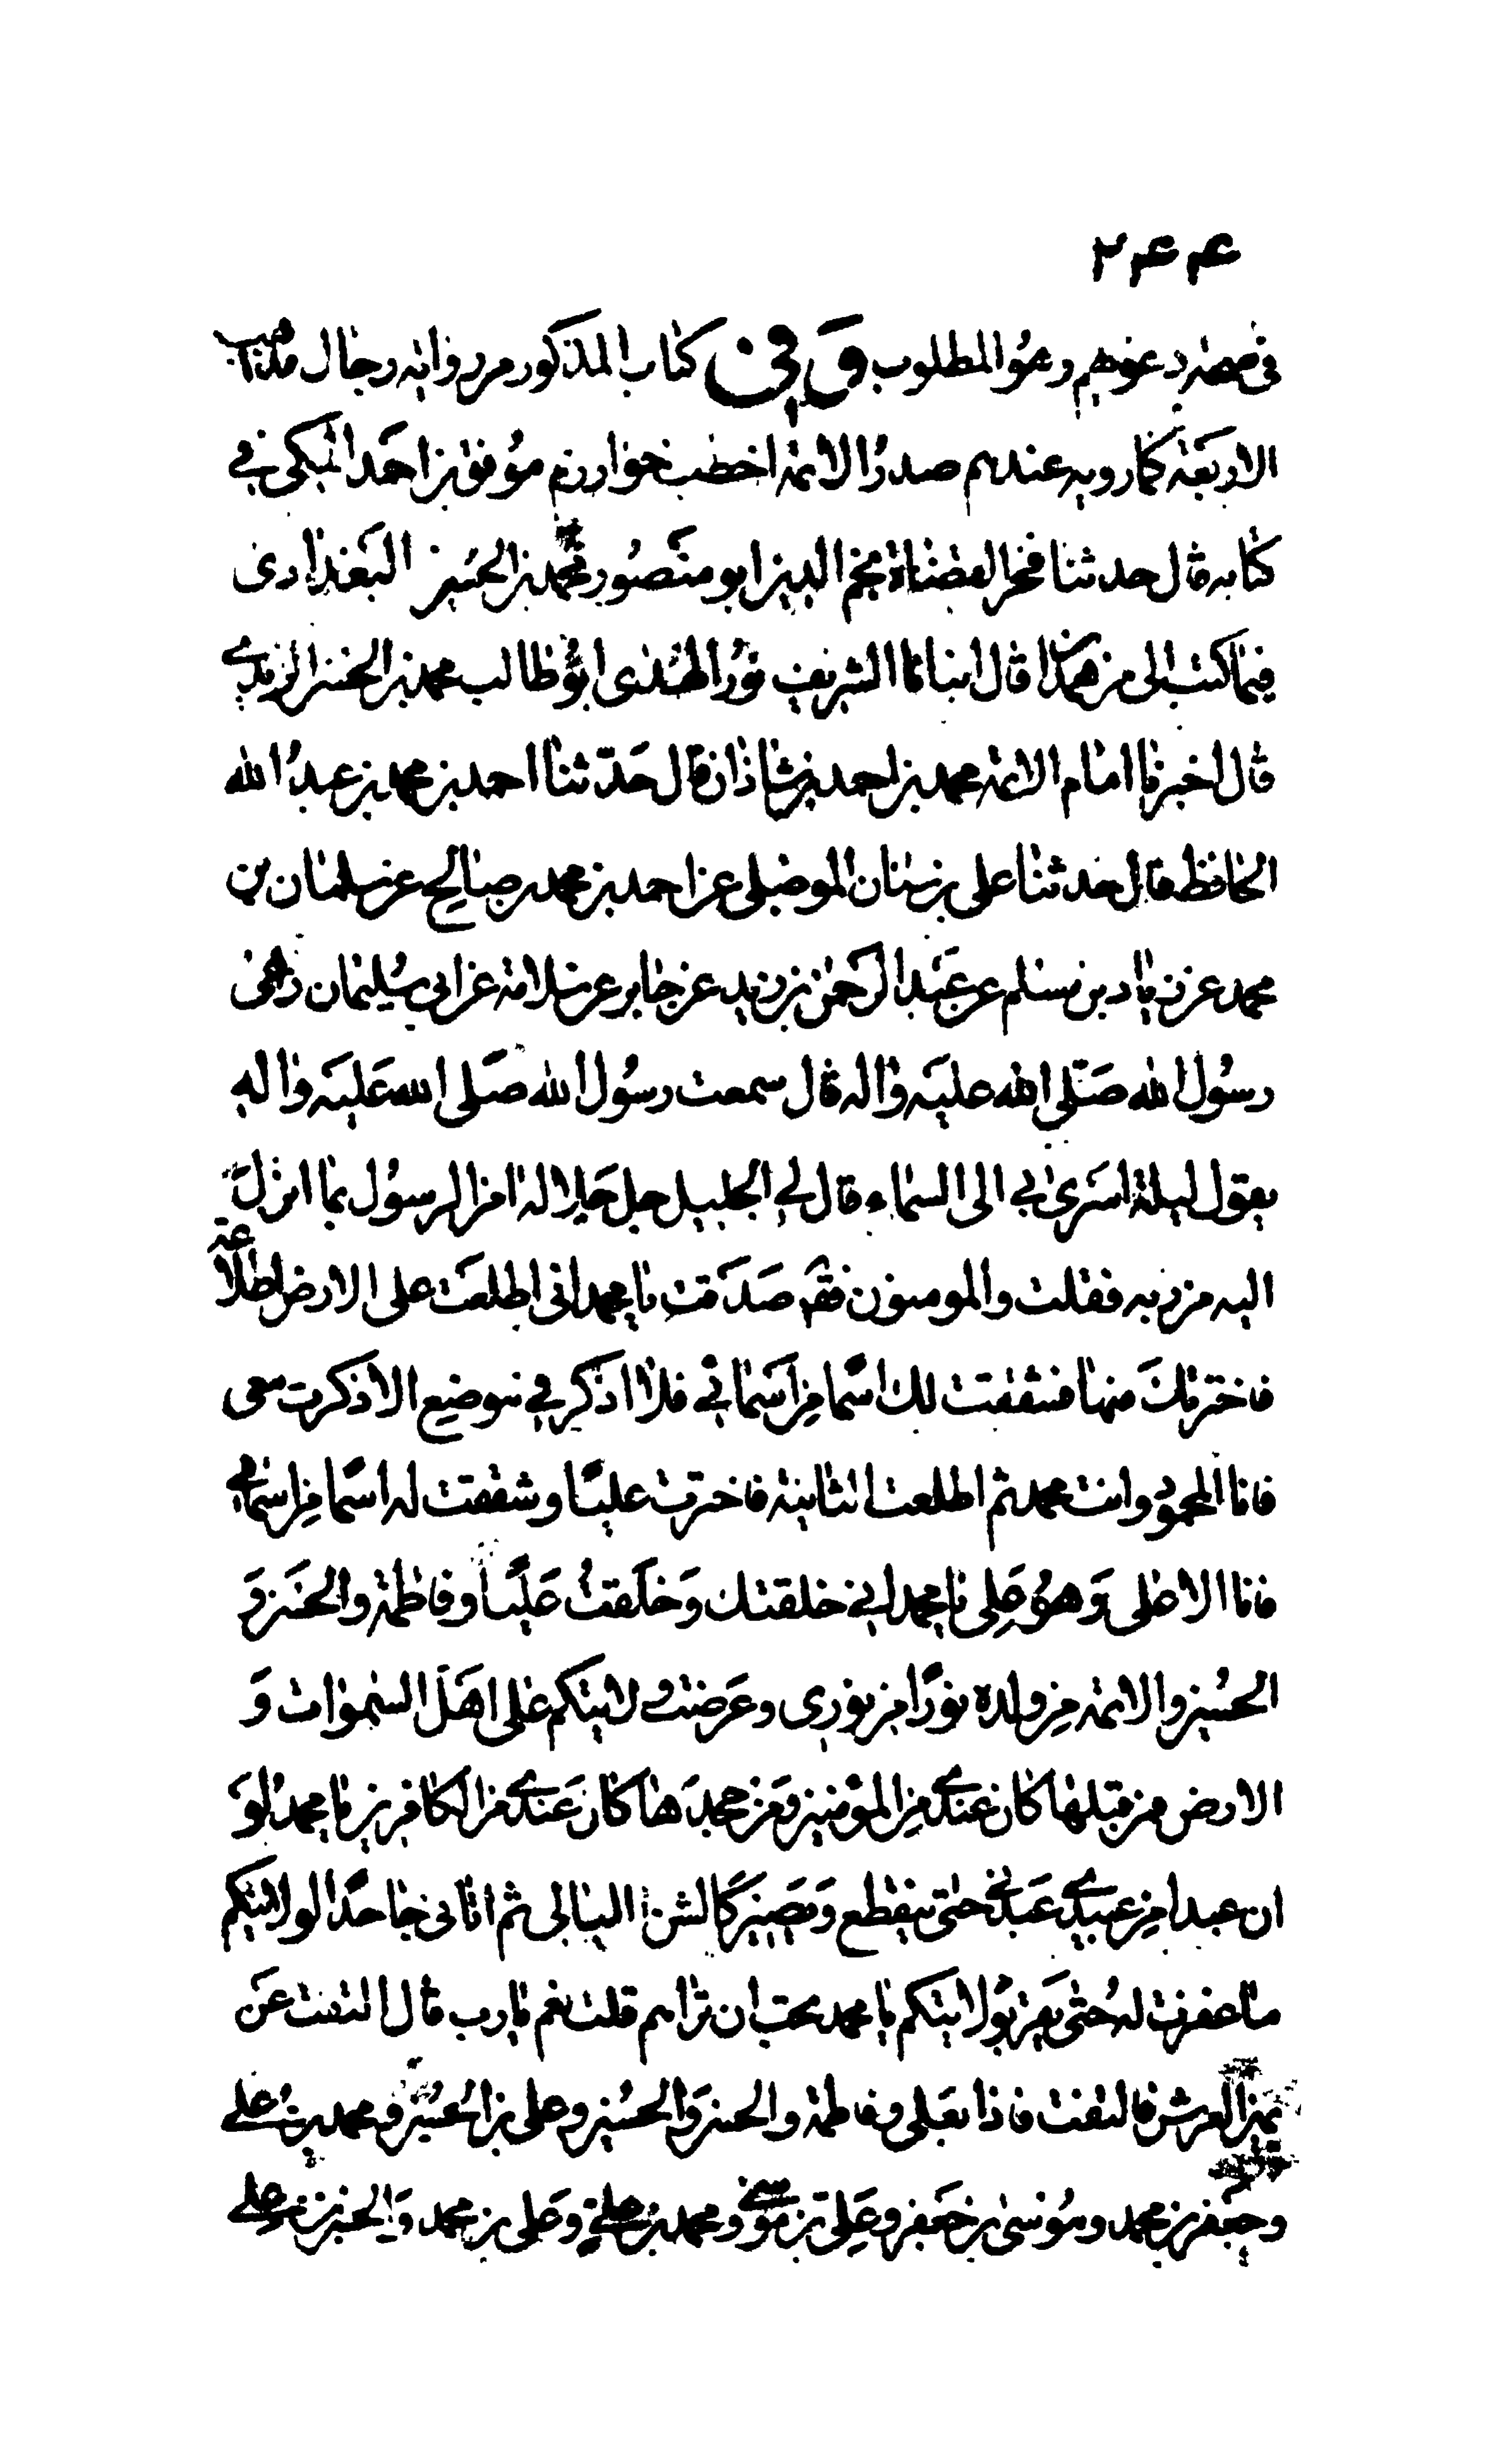 ۲۴۴
فی صحة دعویهم وهو المطلوب وفی کتاب المذکور من روایة رجال
الاربعة کما رویه عندهم صدر الائمة اخطب خوارزم موفق بن احمد المکی فی
کتابه قال حدثنا فخر القضاة نجم الدین ابو منصور محمد بن الحسین البغدادی
فیما کتب الی من همدان قال انبانا الشریف نور الهدی ابو طالب محمد بن الحسن الزینبی
قال اخبرنا امام الائمة محمد بن احمد بن شاذان قال حدثنا احمد بن محمد بن عبد الله
الحافظ قال حدثنا علی بن سنان الموصلی عن احمد بن محمد بن صالح عن سلمان بن
محمد عن زیاد بن مسلم عن عبد الرحمن بن زید عن جابر عن سلامة عن ابی سلیمان راعی
رسول الله صلی الله علیه واله قال سمعت رسول الله صلی الله علیه واله
یقول لیلة اسری بی الی السماء قال لی الجلیل جل جلاله امن الرسول بما انزل
الیه من ربه فقلت والمومنون فقال صدقت یا محمد انی اطلعت علی الارض اطلاعة
فاخترتك منها فشققت لك اسما من اسمائی فلا اذکر فی موضع الا ذکرت معی
فانا المحمود وانت محمد ثم اطلعت الثانیة فاخترت علیا وشققت له اسما من اسمائی
فانا الاعلی وهو علی یا محمد انی خلقتك وخلقت علیا وفاطمة والحسن و
الحسین والائمة من ولده نورا من نوری وعرضت ولایتکم علی اهل السموات و
الارض من قبلها کان عندی من المؤمنین ومن جحدها کان عندی من الکافرین یا محمد لو
ان عبدا من عبیدی عبدنی حتی ینقطع ویصیر کالشن البالی ثم اتانی جاحدا لولایتکم
ما غفرت له حتی یقر بولایتکم یا محمد تحب ان تراهم قلت نعم یا رب قال التفت عن
یمین العرش فالتفت فاذا بعلی وفاطمة والحسن والحسین وعلی بن الحسین ومحمد بن علی
وجعفر بن محمد وموسی بن جعفر وعلی بن موسی ومحمد بن علی وعلی بن محمد والحسن بن علی